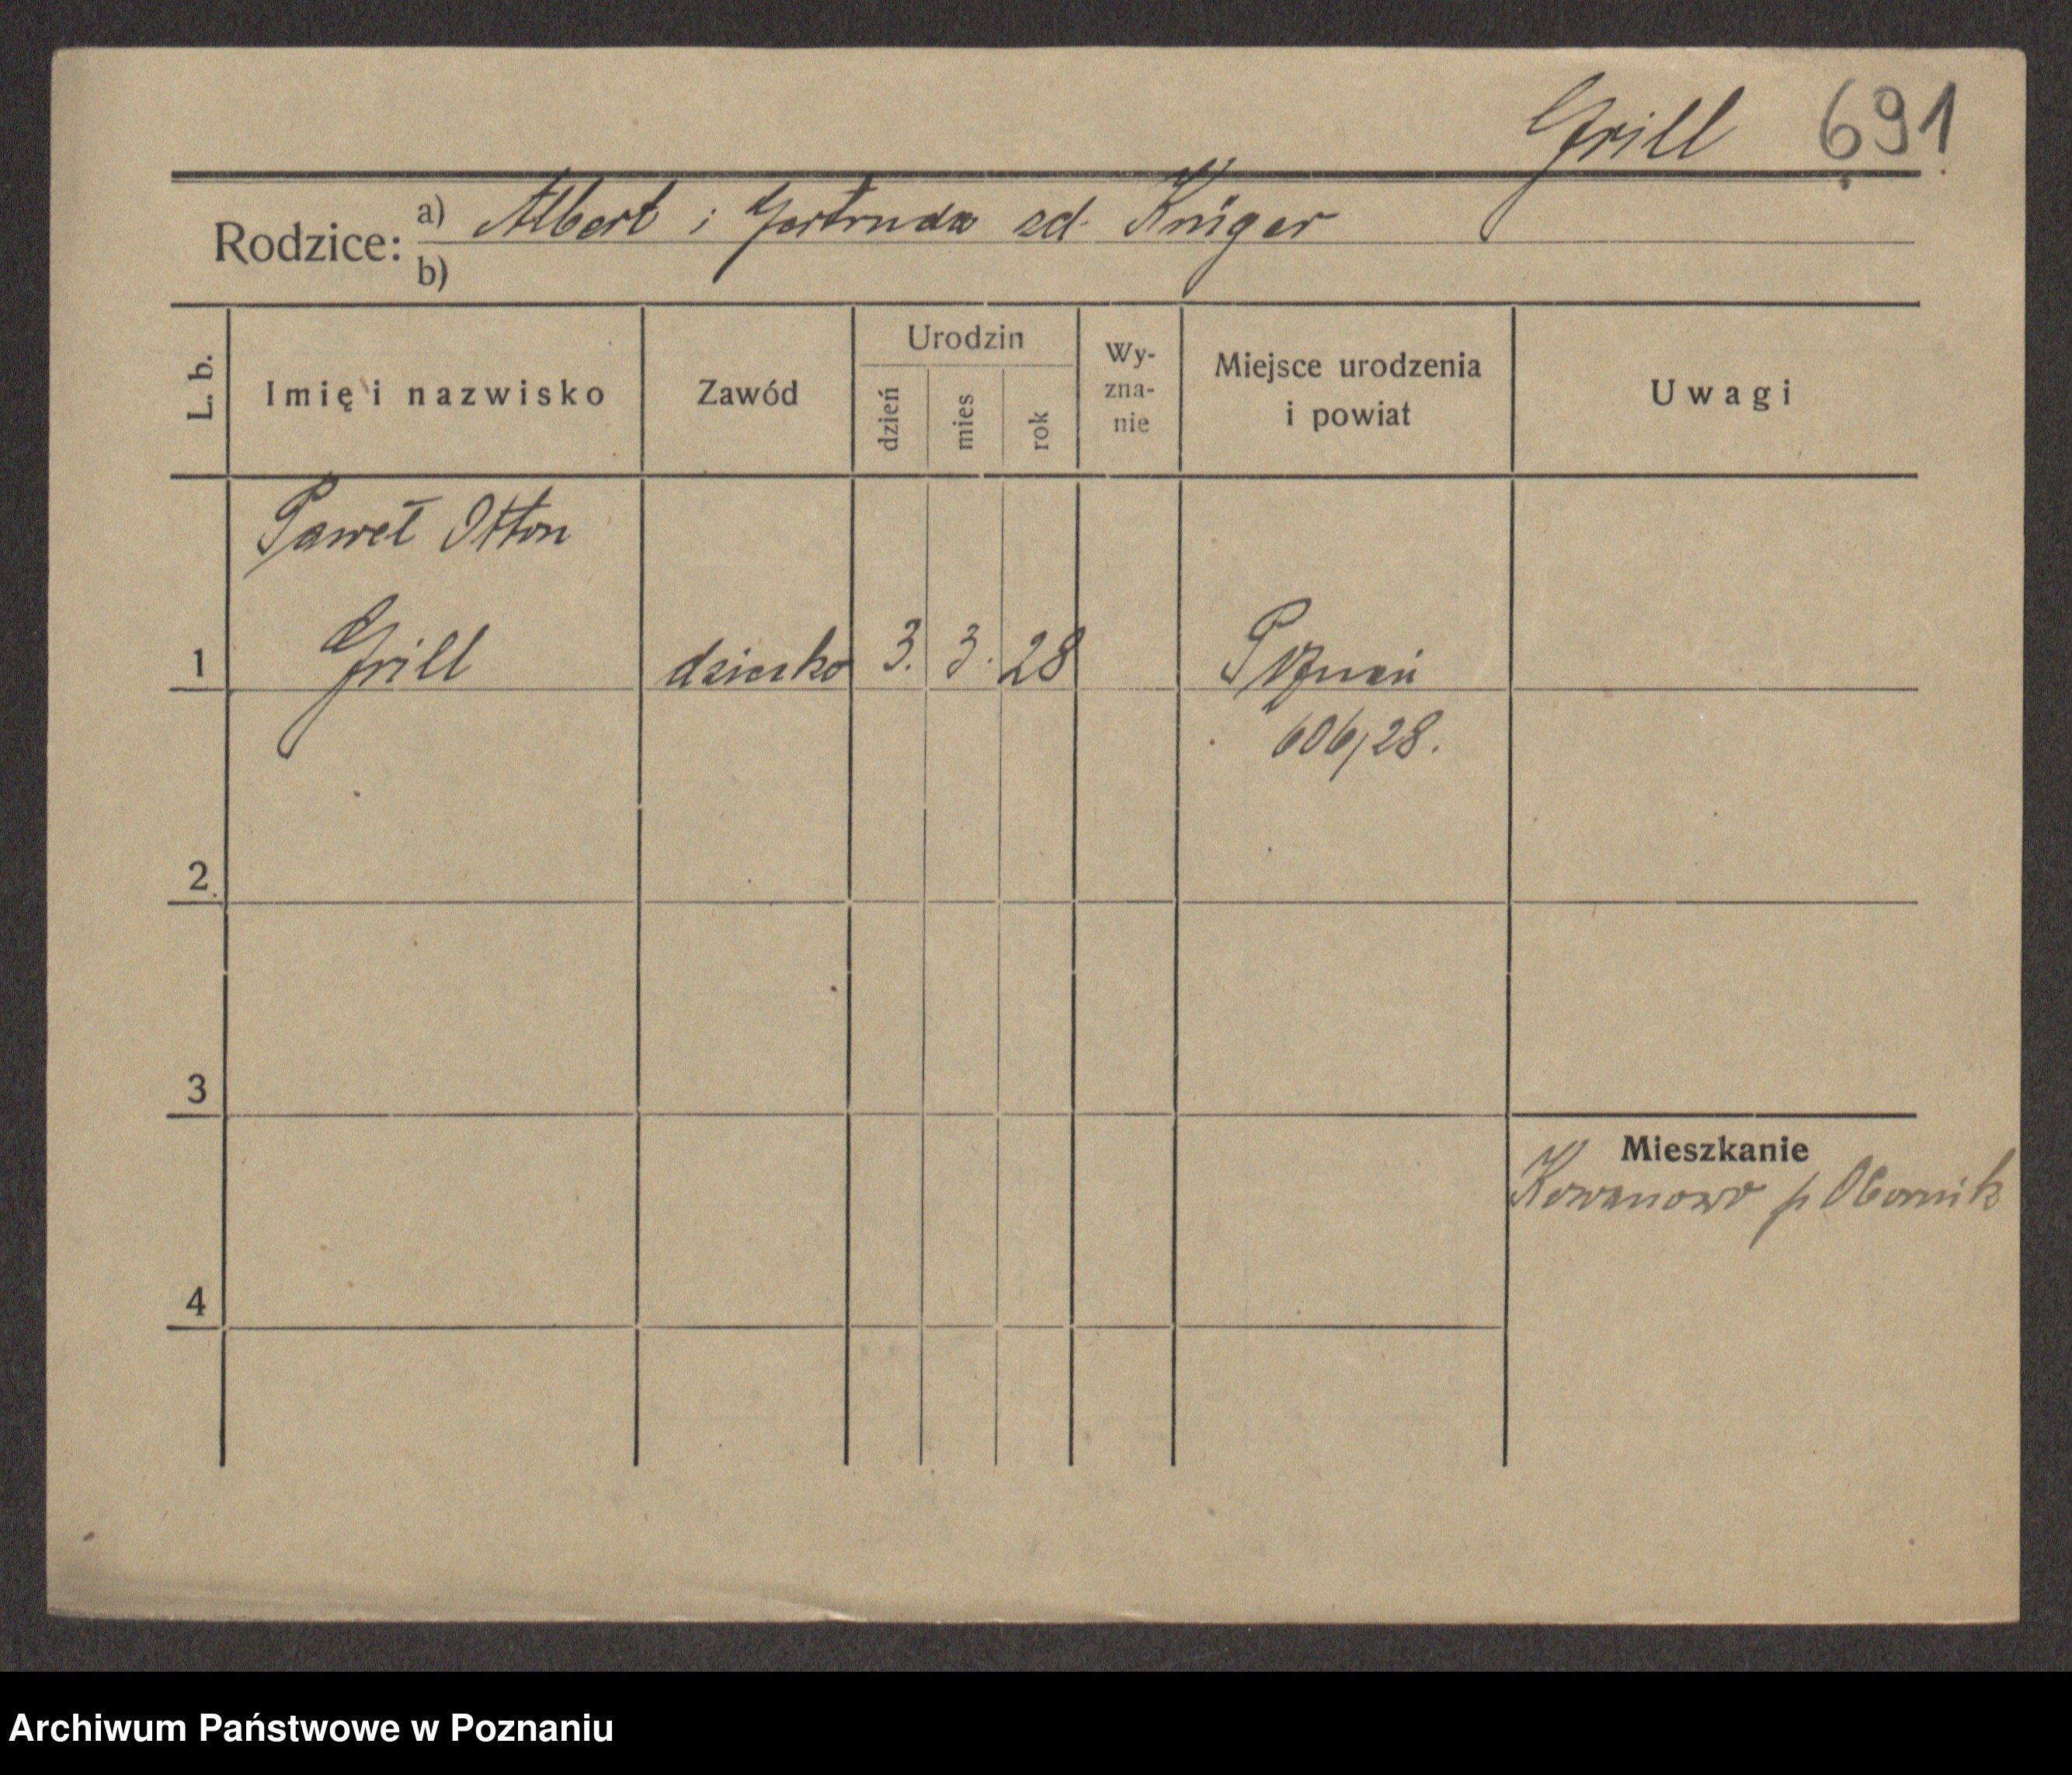 Grill 691
Rodzice: a) Albert i Gertruda zd. Krüger
b)
L. b.
Imię i nazwisko
Zawód
Urodzin
dzień
mies
rok
Wy-
zna-
nie
Miejsce urodzenia
i powiat
Uwagi
Paweł Otton
1 Grill dziecko 3. 3. 28 Poznań
606/28.
2
3
Mieszkanie
Kowanowo p Obornik
4
Archiwum Państwowe w Poznaniu